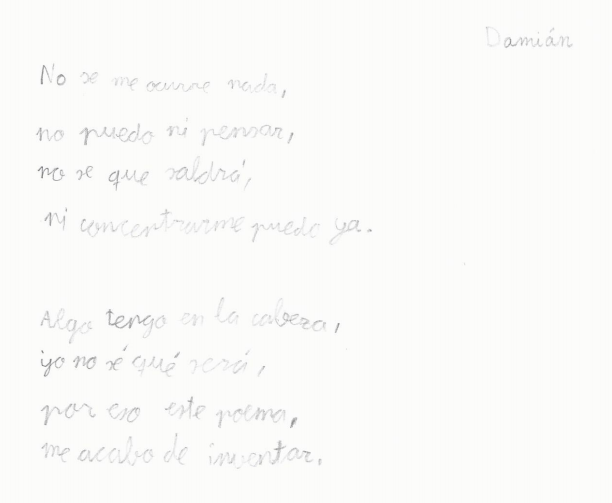 Damián
No se me ocurre nada,
no puedo ni pensar,
no se que saldrá,
ni concentrarme puedo ya.
Algo tengo en la cabeza,
yo no sé qué será,
por eso este poema,
me acabo de inventar.